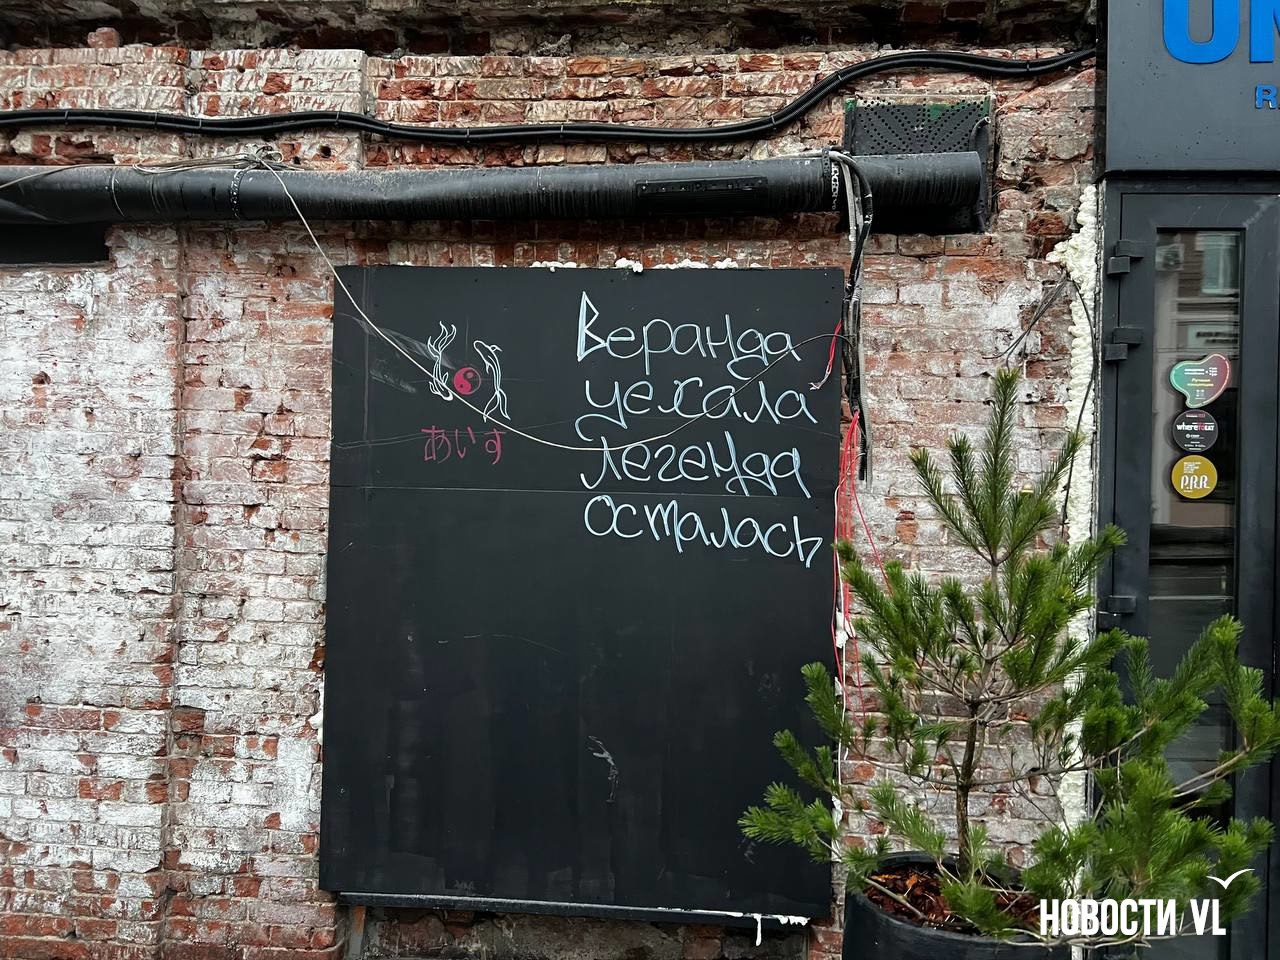 UN
R
Веранда
уехала
легенда
осталась
あいす
whereToEAT
P.R.R.
НОВОСТИ VL